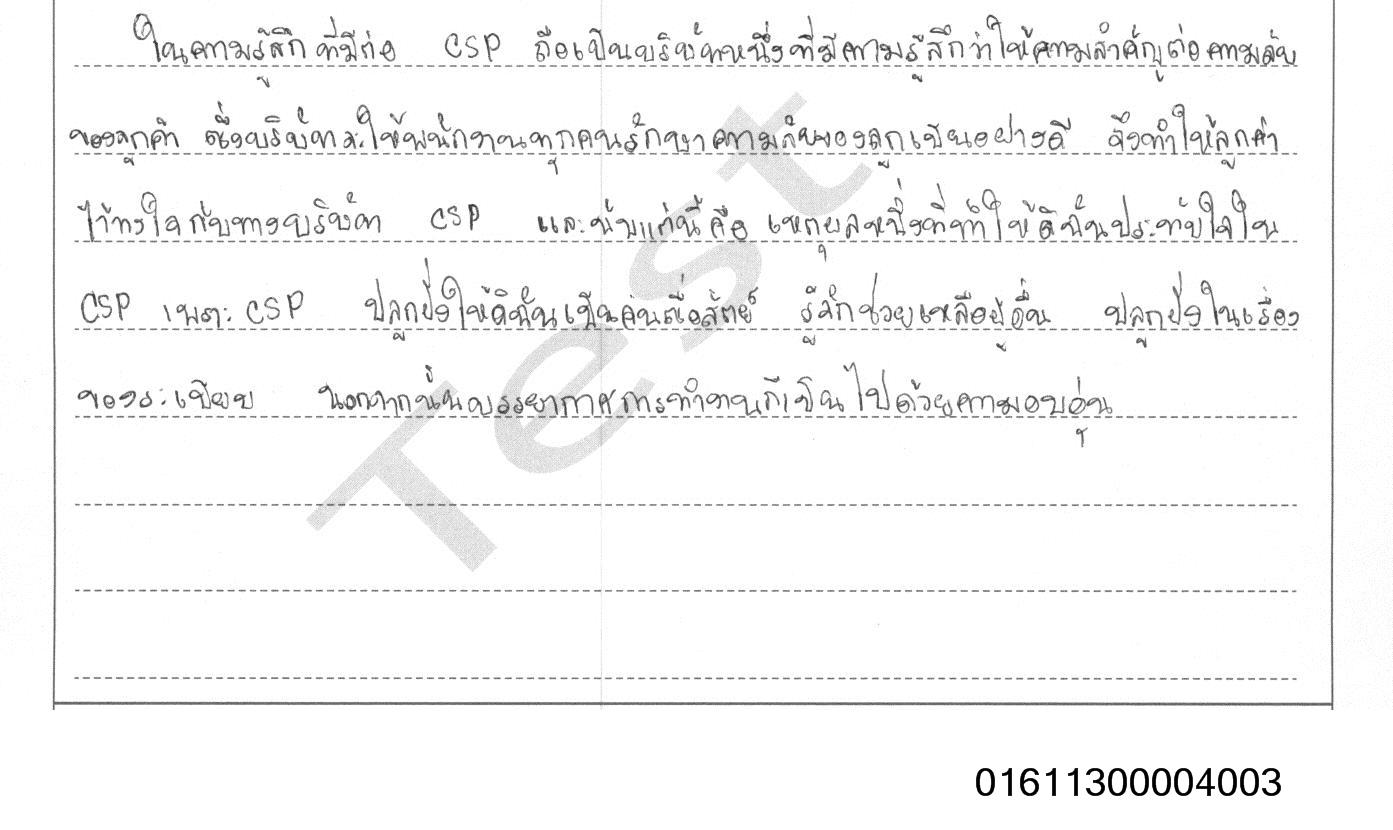 ในความรู้สึกที่มีต่อ CSP ถือเป็นบริษัทหนึ่งที่มีความรู้สึกว่าให้ความสำคัญต่อความลับ
ของลูกค้า ซึ่งบริษัทจะให้พนักงานทุกคนรักษาความลับของลูกเป็นอย่างดี จึงทำให้ลูกค้า
ไว้วางใจกับทางบริษัท CSP และนั่นแก่นี้คือ เหตุผลหนึ่งที่ทำให้ดิฉันประทับใจใน
CSP เพราะ CSP ปลูกฝังให้ดิฉันเป็นคนซื่อสัตย์ รู้จักช่วยเหลือผู้อื่น ปลูกฝังในเรื่อง
ของระเบียบ นอกจากนั้นบรรยากาศการทำงานก็เป็นไปด้วยความอบอุ่น
Test
01611300004003